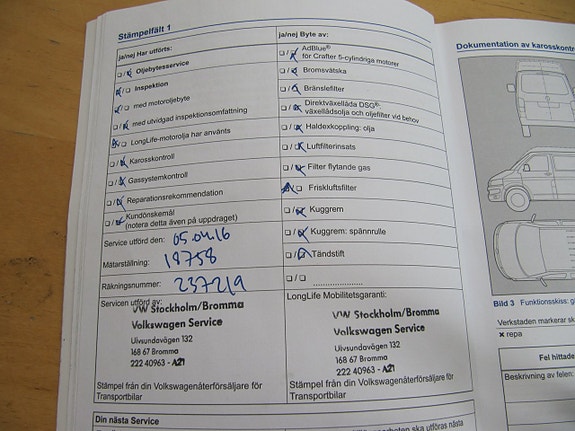 Stämpelfält 1
ja/nej Har utförts:
☐ / ☐ Oljebytesservice
☐ / ☐ Inspektion
☐ / ☐ med motoroljebyte
☐ / ☐ med utvidgad inspektionsomfattning
☐ / ☐ LongLife-motorolja har använts
☐ / ☐ Karosskontroll
☐ / ☐ Gassystemkontroll
☐ / ☐ Reparationsrekommendation
☐ / ☐ Kundönskemål
(notera detta även på uppdraget)
Service utförd den: 05.04.16
Mätarställning: 18758
Räkningsnummer: 237219
Servicen utförd av:
VW Stockholm/Bromma
Volkswagen Service
Ulvsundavägen 132
168 67 Bromma
222 40963 - A21
Stämpel från din Volkswagenåterförsäljare för
Transportbilar
ja/nej Byte av:
☐ / ☐ AdBlue®
för Crafter 5-cylindriga motorer
☐ / ☐ Bromsvätska
☐ / ☐ Bränslefilter
☐ / ☐ Direktväxellåda DSG®:
växellådsolja och oljefilter vid behov
☐ / ☐ Haldexkoppling: olja
☐ / ☐ Luftfilterinsats
☐ / ☐ Filter flytande gas
☐ / ☐ Friskluftsfilter
☐ / ☐ Kuggrem
☐ / ☐ Kuggrem: spännrulle
☐ / ☐ Tändstift
☐ / ☐ ....................
LongLife Mobilitetsgaranti:
VW Stockholm/Bromma
Volkswagen Service
Ulvsundavägen 132
168 67 Bromma
222 40963 - A21
Stämpel från din Volkswagenåterförsäljare för
Transportbilar
Din nästa Service
ska utföras nästa
Dokumentation av karosskontr
Bild 3 Funktionsskiss:
Verkstaden markerar sk
× repa
Fel hittade
Beskrivning av felen: